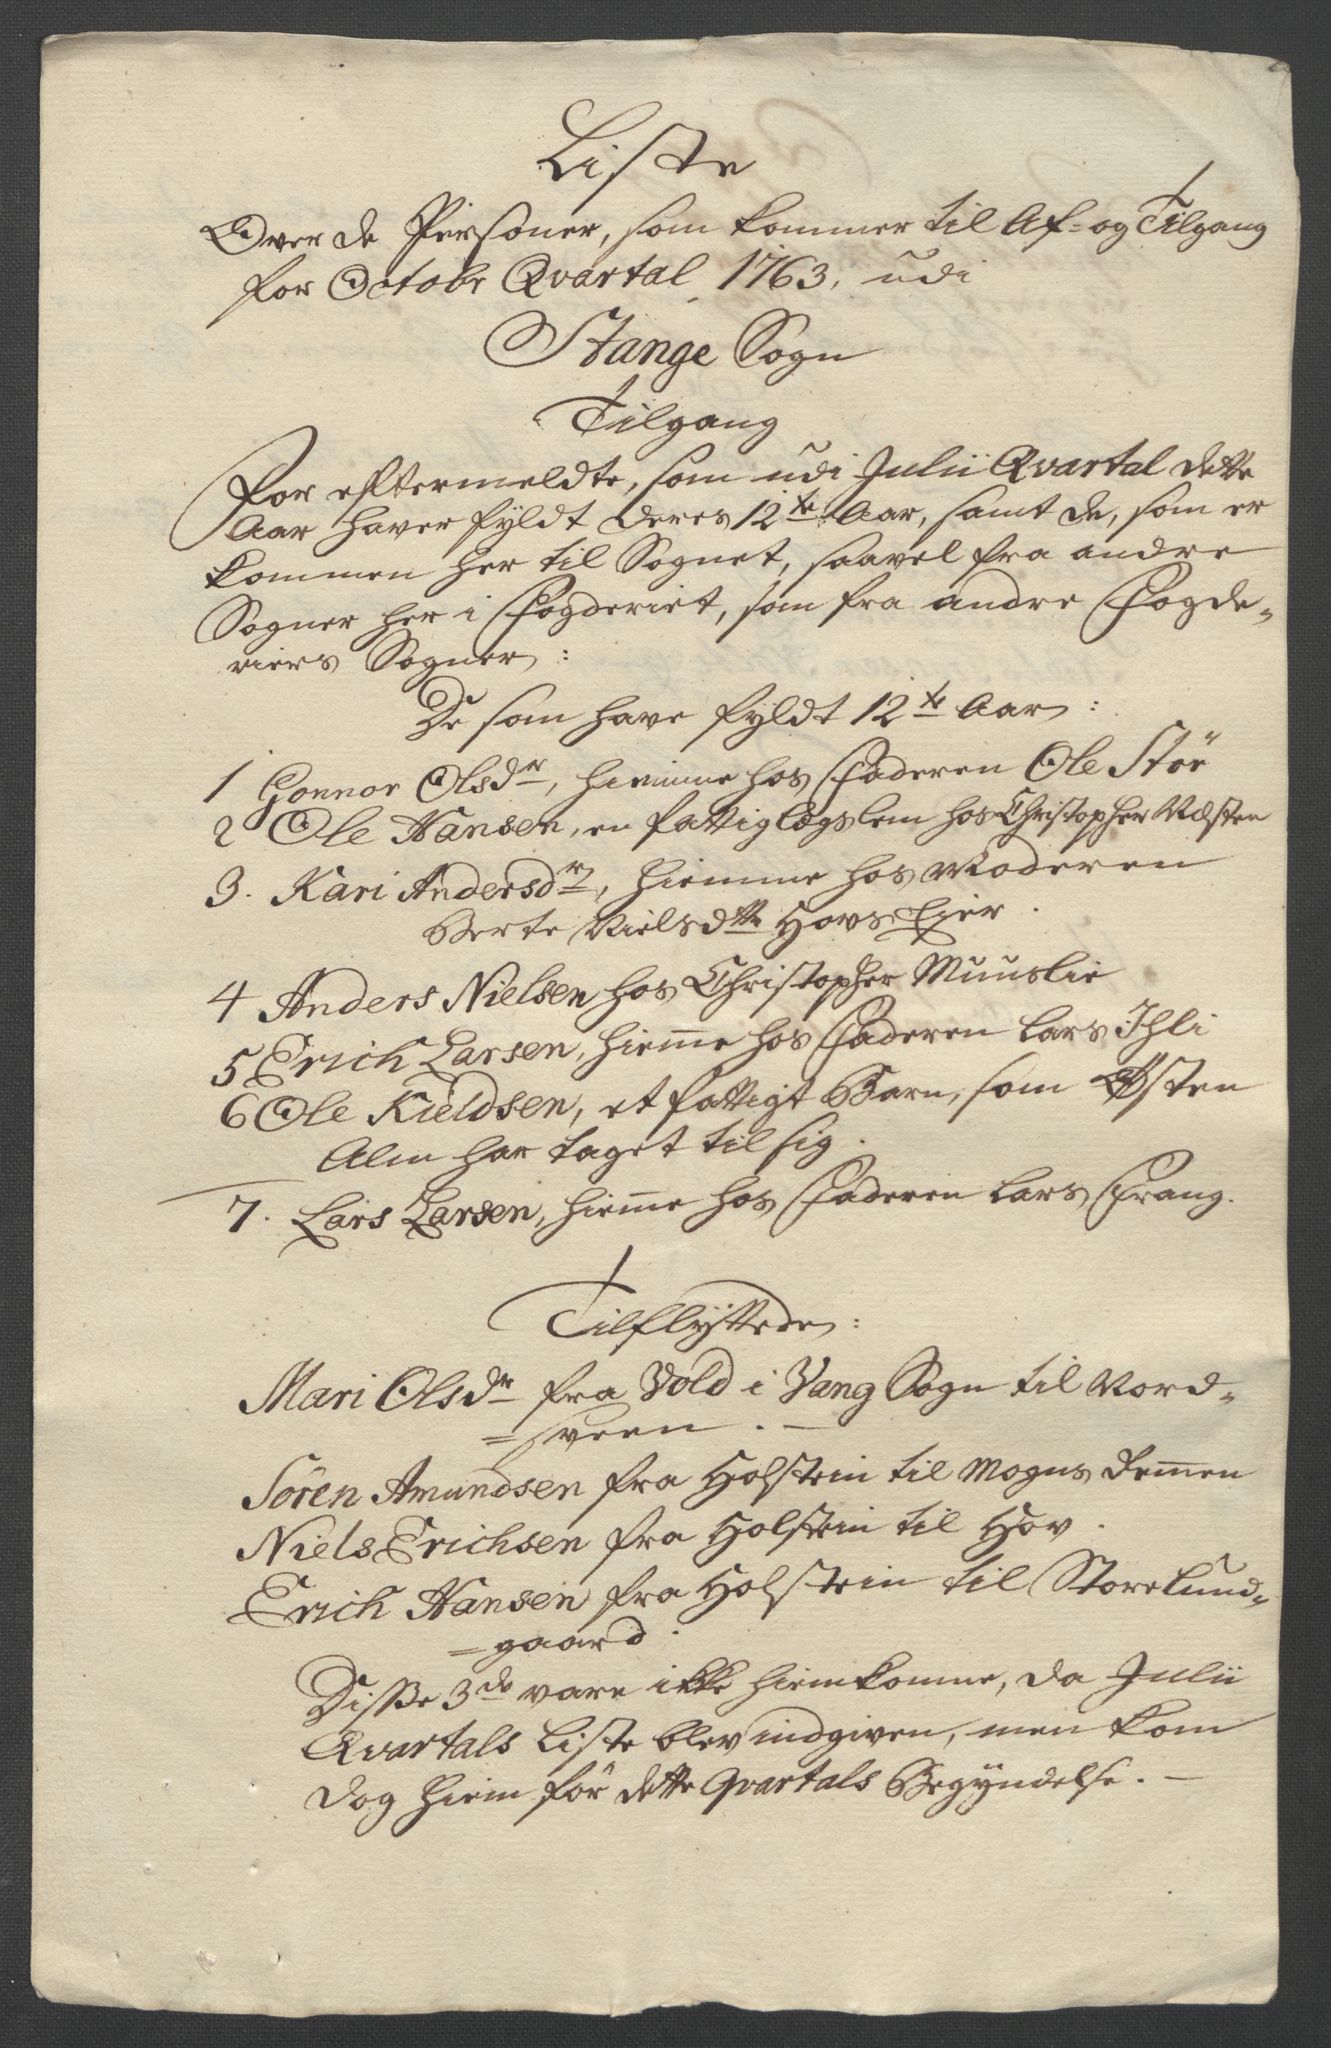 Liste
Over de Personer, som kommer til Af- og Tilgang
for Octobr Qvartal 1763, udi
Stange Sogn
Tilgang
For eftermeldte, som udi Julii Qvartal dette
Aar haver fyldt deres 12te Aar, samt de, som er
kommen her til Sognet, saavel fra andre
Sogner her i Fogderiet, som fra andre Fogde-
riers Sogner:
De som have fyldt 12te Aar:
1 Gonnor Olsdr, hiemme hos Faderen Ole Stör
2 Ole Hansen, en fattig lægslem hos Christopher Næsten
3. Kari Andersdr, hiemme hos Moderen
Berte Nielsdtte Hovs Eier.
4 Anders Nielsen hos Christopher Muuslie
5 Erich Larsen, hiem̅e hos Faderen Lars Ihli
6 Ole Kieldsen, et fattigt Barn, som Östen
Alm har taget til sig.
7. Lars Larsen, hiem̅e hos Faderen Lars Frang.
Tilflyttede:
Mari Olsdr fra Vold i Vang Sogn til Nord-
=sveen.
Sören Amundsen fra Holstein til Mogns Dem̅en
Niels Erichsen fra Holstein til Hov.
Erich Hansen fra Holstein til Storelund-
=gaard.
Disse 3de vare ikke hiemkomne, da Julii
Qvartals Liste blev indgiven, men kom
dog hiem för dette Qvartals Begyndelse.